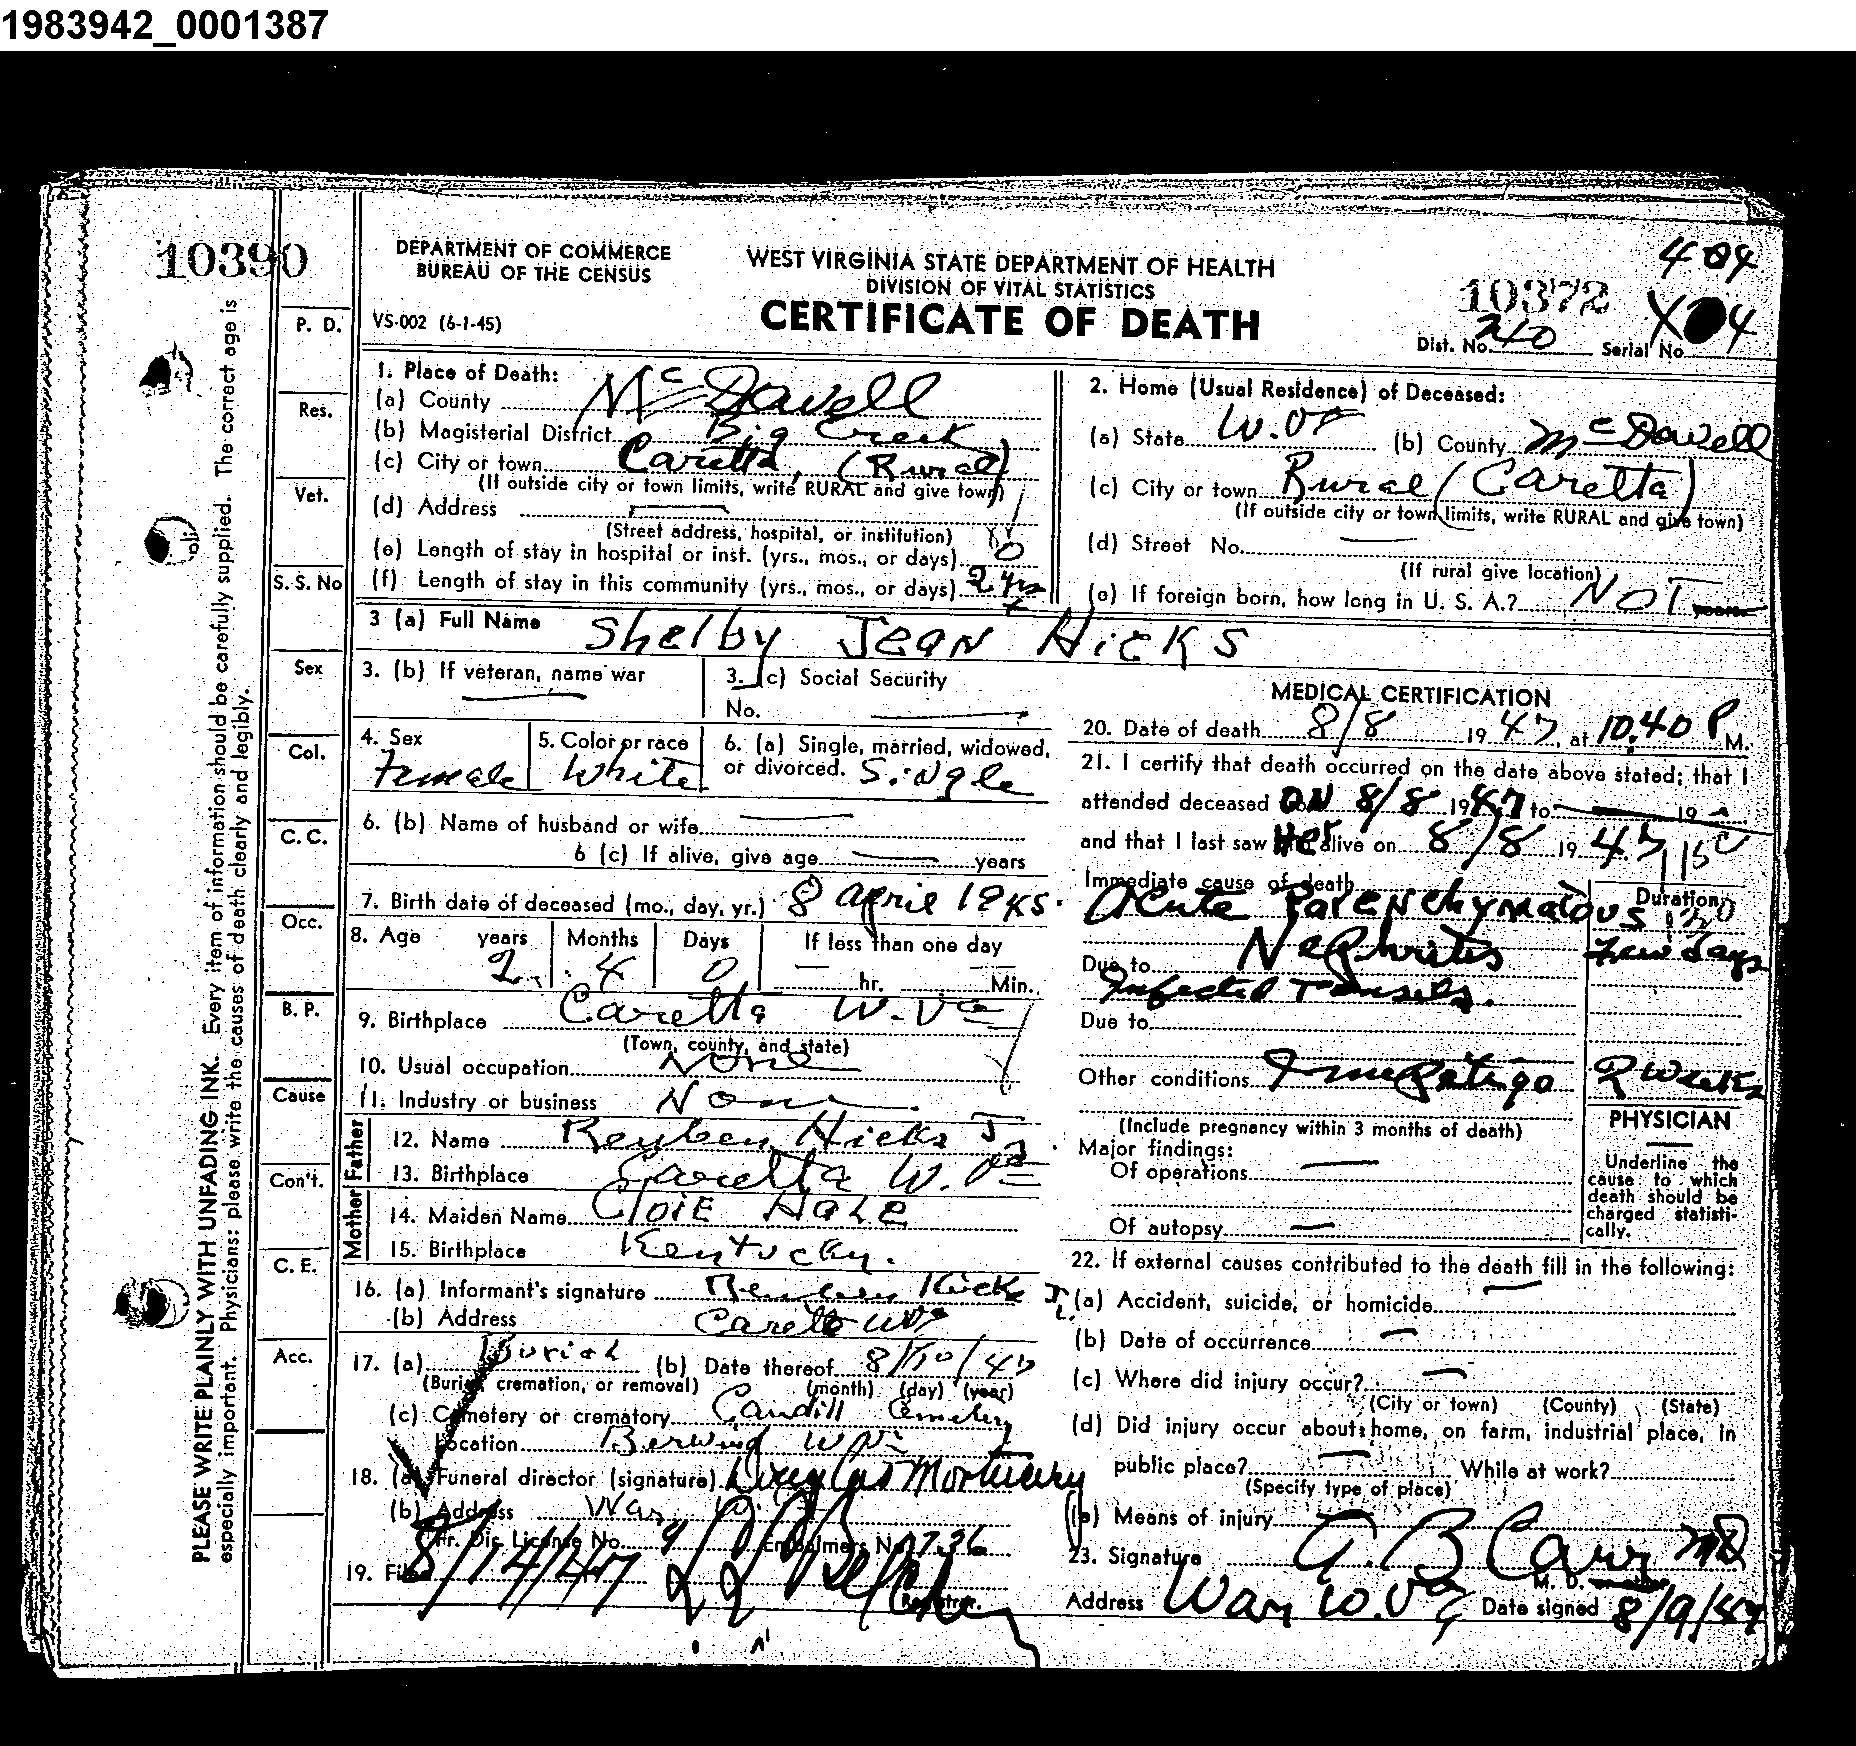 1983942_0001387
10390
DEPARTMENT OF COMMERCE
BUREAU OF THE CENSUS
VS-002 (6-1-45)
WEST VIRGINIA STATE DEPARTMENT OF HEALTH
DIVISION OF VITAL STATISTICS
CERTIFICATE OF DEATH
404
10372
Dist. No. 210 Serial No.
PLEASE WRITE PLAINLY WITH UNFADING INK. Every item of information should be carefully supplied. The correct age is
especially important. Physicians: please write the causes of death clearly and legibly.
P. D.
Res.
Vet.
S. S. No
Sex
Col.
C. C.
Occ.
B. P.
Cause
Con't.
C. E.
Acc.
1. Place of Death:
(a) County McDowell
(b) Magisterial District Big Creek
(c) City or town Caretta, (Rural)
(If outside city or town limits, write RURAL and give town)
(d) Address
(Street address, hospital, or institution)
(e) Length of stay in hospital or inst. (yrs., mos., or days) 0
(f) Length of stay in this community (yrs., mos., or days) 2 yrs
2. Home (Usual Residence) of Deceased:
(a) State W. Va (b) County McDowell
(c) City or town Rural (Caretta)
(If outside city or town limits, write RURAL and give town)
(d) Street No.
(If rural give location)
(e) If foreign born, how long in U. S. A.? NOT years
3 (a) Full Name Shelby Jean Hicks
3. (b) If veteran, name war
3. (c) Social Security
No.
4. Sex
Female
5. Color or race
White
6. (a) Single, married, widowed,
or divorced. Single
6. (b) Name of husband or wife
6 (c) If alive, give age years
7. Birth date of deceased (mo., day, yr.) 8 april 1945.
8. Age years Months Days If less than one day
2 4 0 hr. Min.
9. Birthplace Caretta W. Va
(Town, county, and state)
10. Usual occupation None
11. Industry or business None
Father
12. Name Reuben Hicks Jr
13. Birthplace Caretta W. Va
Mother
14. Maiden Name Cloie Hale
15. Birthplace Kentucky.
16. (a) Informant's signature Reuben Hicks Jr.
(b) Address Caretta W Va
17. (a) Burial (b) Date thereof 8/10/47
(Burial, cremation, or removal) (month) (day) (year)
(c) Cemetery or crematory Caudill Cemetery
Location Berwind W Va
18. (a) Funeral director (signature) Douglas Mortuary
(b) Address War,
Fr. Dir. License No. Embalmers No. 736
19. Filed 8/14/47
Registrar.
MEDICAL CERTIFICATION
20. Date of death 8/8 1947, at 10:40 P M.
21. I certify that death occurred on the date above stated; that I
attended deceased ON 8/8 1947 to 19
and that I last saw Her alive on 8/8 1947
Immediate cause of death Duration
Acute Parenchymatous
Nephritis few days
Due to
Infected Tonsils.
Due to
Other conditions Impetigo 2 weeks
(Include pregnancy within 3 months of death)
Major findings:
Of operations
Of autopsy
PHYSICIAN
Underline the
cause to which
death should be
charged statisti-
cally.
22. If external causes contributed to the death fill in the following:
(a) Accident, suicide, or homicide
(b) Date of occurrence
(c) Where did injury occur?
(City or town) (County) (State)
(d) Did injury occur about home, on farm, industrial place, in
public place? While at work?
(Specify type of place)
(e) Means of injury
23. Signature A. B. Carr MD
M. D.
Address War W. Va Date signed 8/9/47